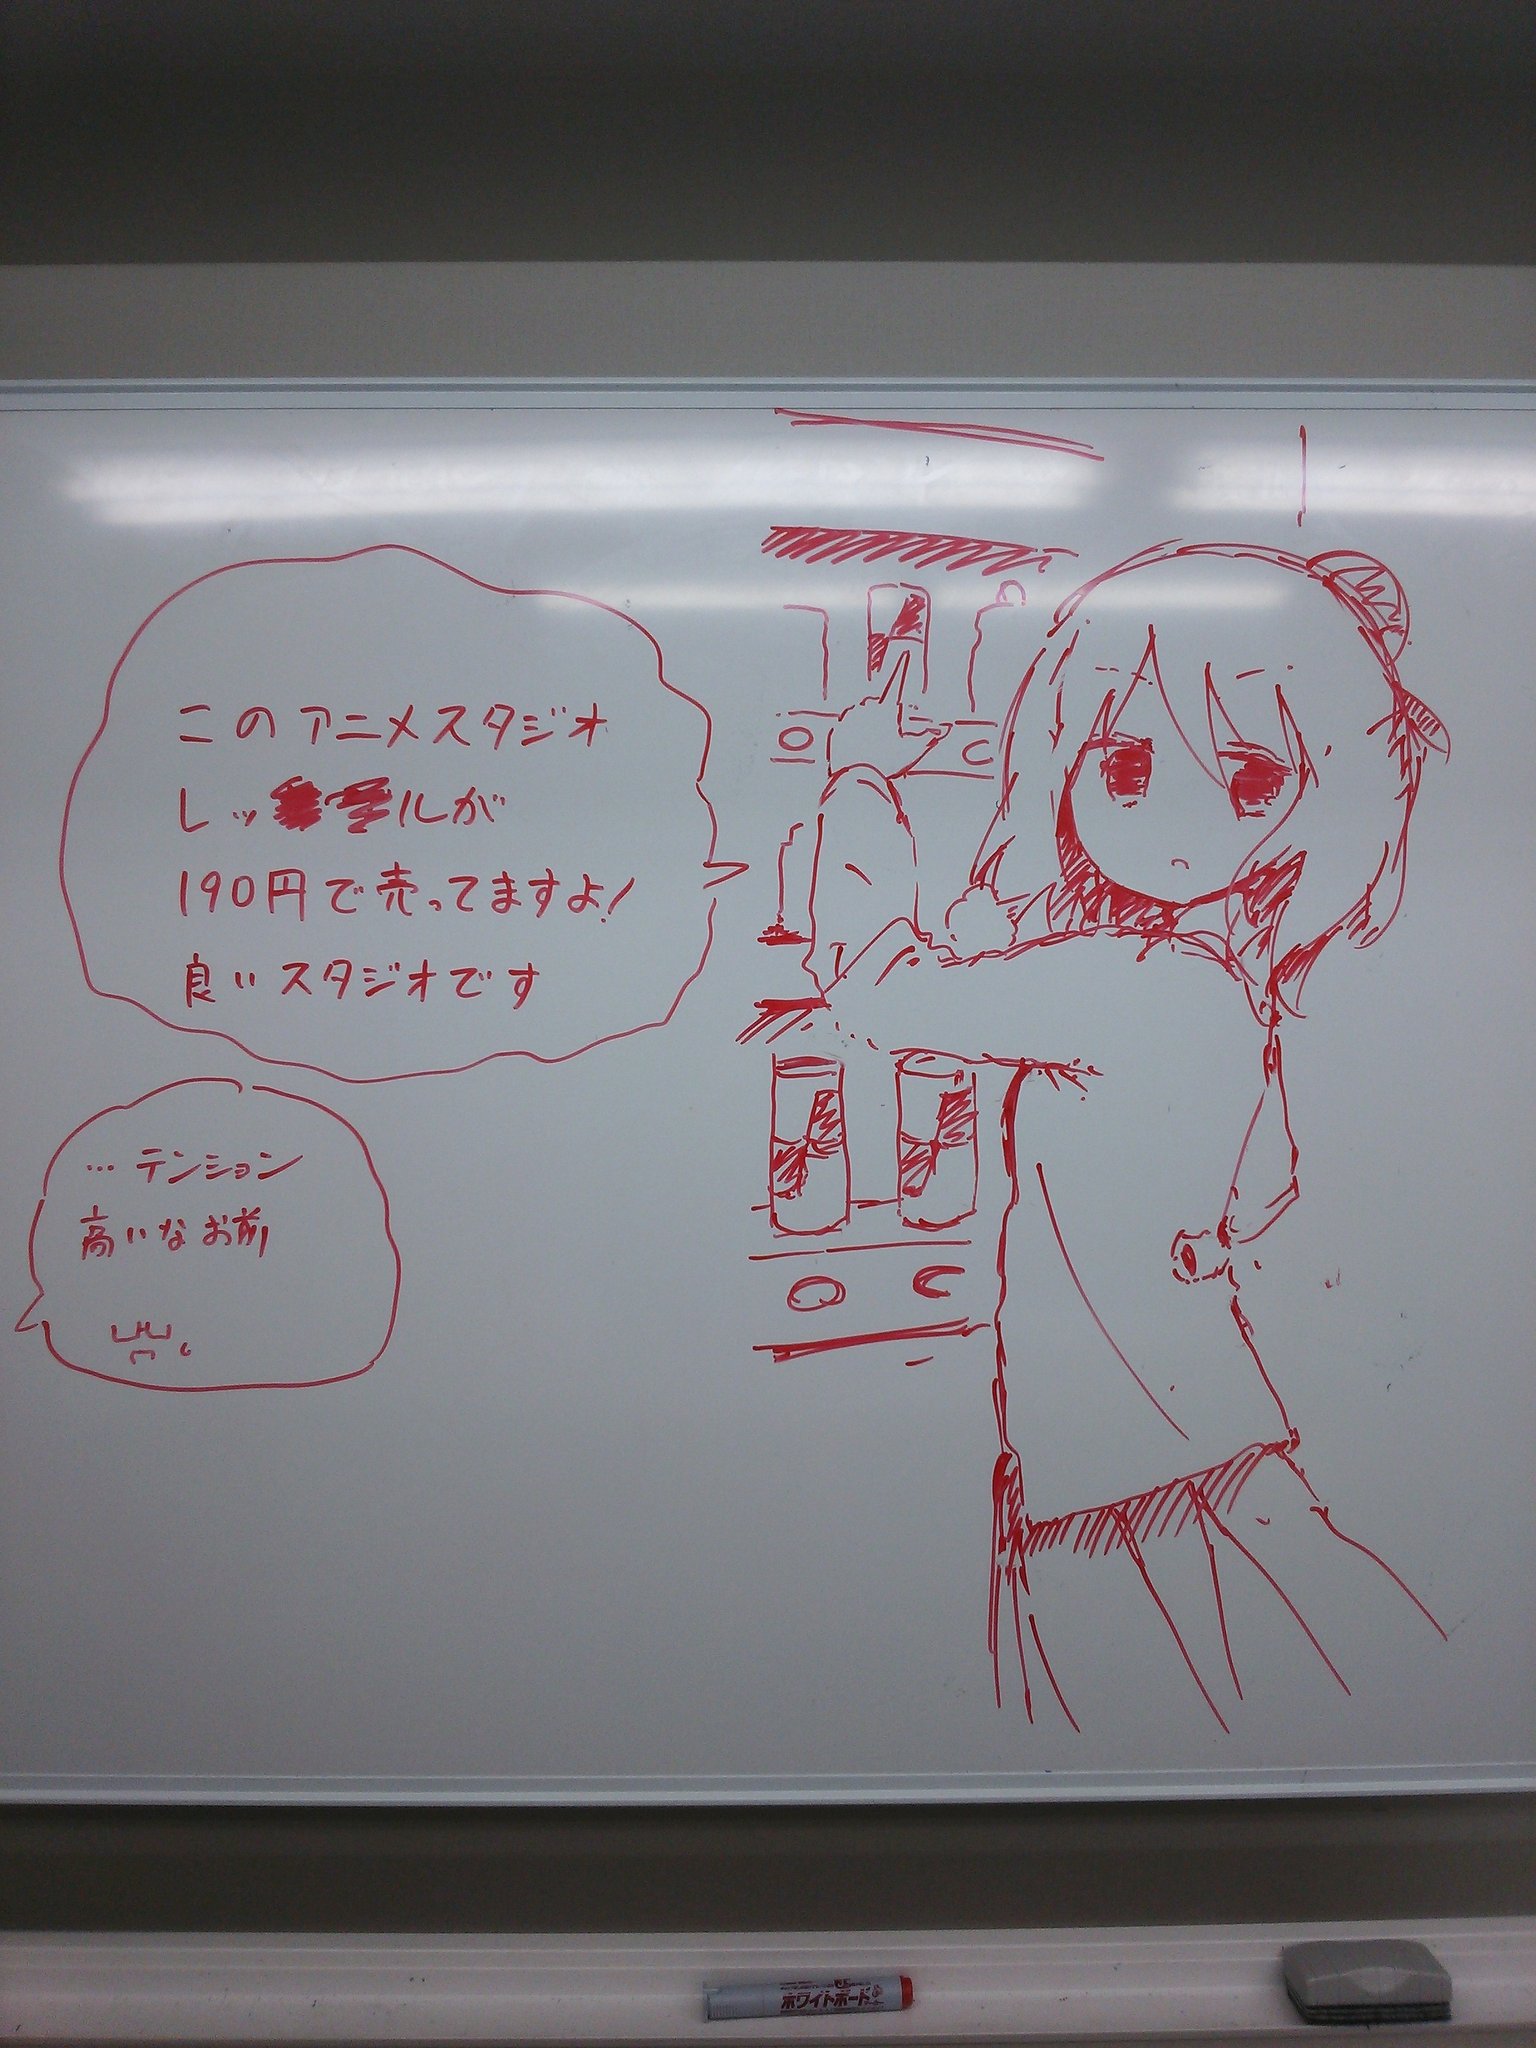 このアニメスタジオ
レッ
ルが
190円で売ってますよ!
良いスタジオです
…テンション
高いなお前
ホワイトボード